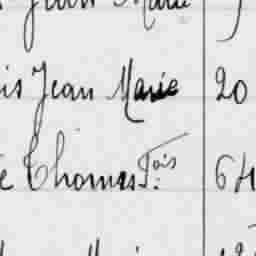 Jean Marie
is Jean Marie 20
e Thomas Fois 64